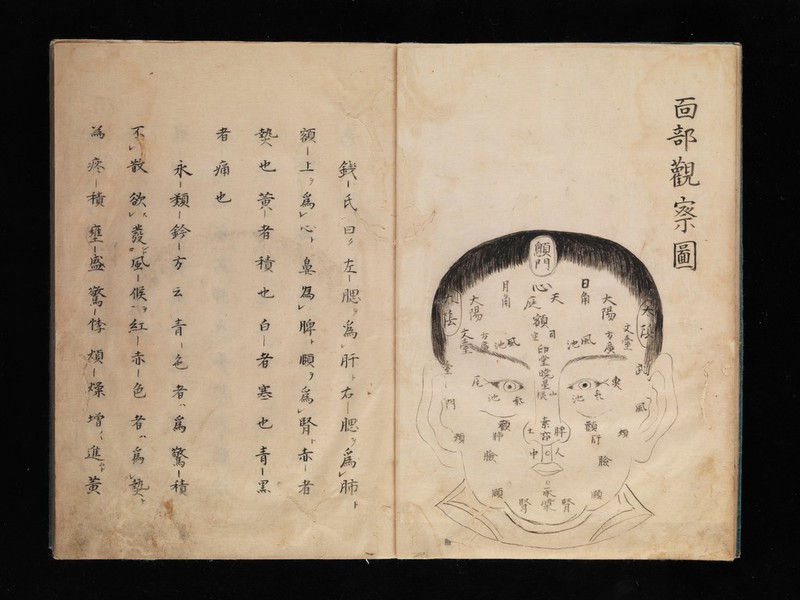 面部觀察圖
顖門
心
天
庭
額
日角
月角
太陽
太陽
太陰
太陰
文臺
文臺
方廣
方廣
風池
風池
司
空
印堂
山根
池
池
風
門
頰
頰
臉
臉
土
脾
人
中
承漿
頤
頤
腎
腎
錢氏曰左腮爲肝右腮爲肺
額上爲心鼻爲脾頤爲腎赤者
熱也黄者積也白者寒也青黒
者痛也
永類鈐方云青色者爲驚積
不散欲發風候紅赤色者爲熱
爲疼積壅盛驚悸煩燥增進黄